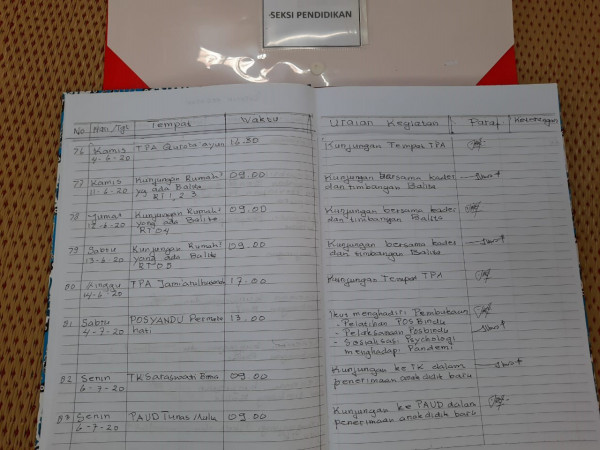 SEKSI PENDIDIKAN
No Hari/Tgl Tempat Waktu Uraian Kegiatan Paraf Keterangan
76 Kamis TPA 16.30 Kunjungan Tempat TPA
4-6-20
77 Kamis Kunjungan Rumah² 09.00 Kunjungan bersama kader
11-6-20 yg ada Balita dan timbangan Balita
RT 1, 2, 3
78 Jumat Kunjungan Rumah² 09.00 Kunjungan bersama kader
12-6-20 yang ada Balita dan timbangan Balita
RT 04
79 Sabtu Kunjungan Rumah² 09.00 Kunjungan bersama kader
13-6-20 yang ada Balita dan timbangan Balita
RT 05
80 Minggu TPA 17.00 Kunjungan Tempat TPA
14-6-20
81 Sabtu POSYANDU Permata 13.00 Ikut menghadiri Pembukaan
4-7-20 hati - Pelatihan POSBindu
- Pelaksanaan Posbindu
- Sosialisasi Psychologi
menghadapi Pandemi
82 Senin TK Saraswati 09.00 Kunjungan ke TK dalam
6-7-20 penerimaan anak didik baru
83 Senin PAUD Tunas Mulia 09.00 Kunjungan ke PAUD dalam
6-7-20 penerimaan anak didik baru